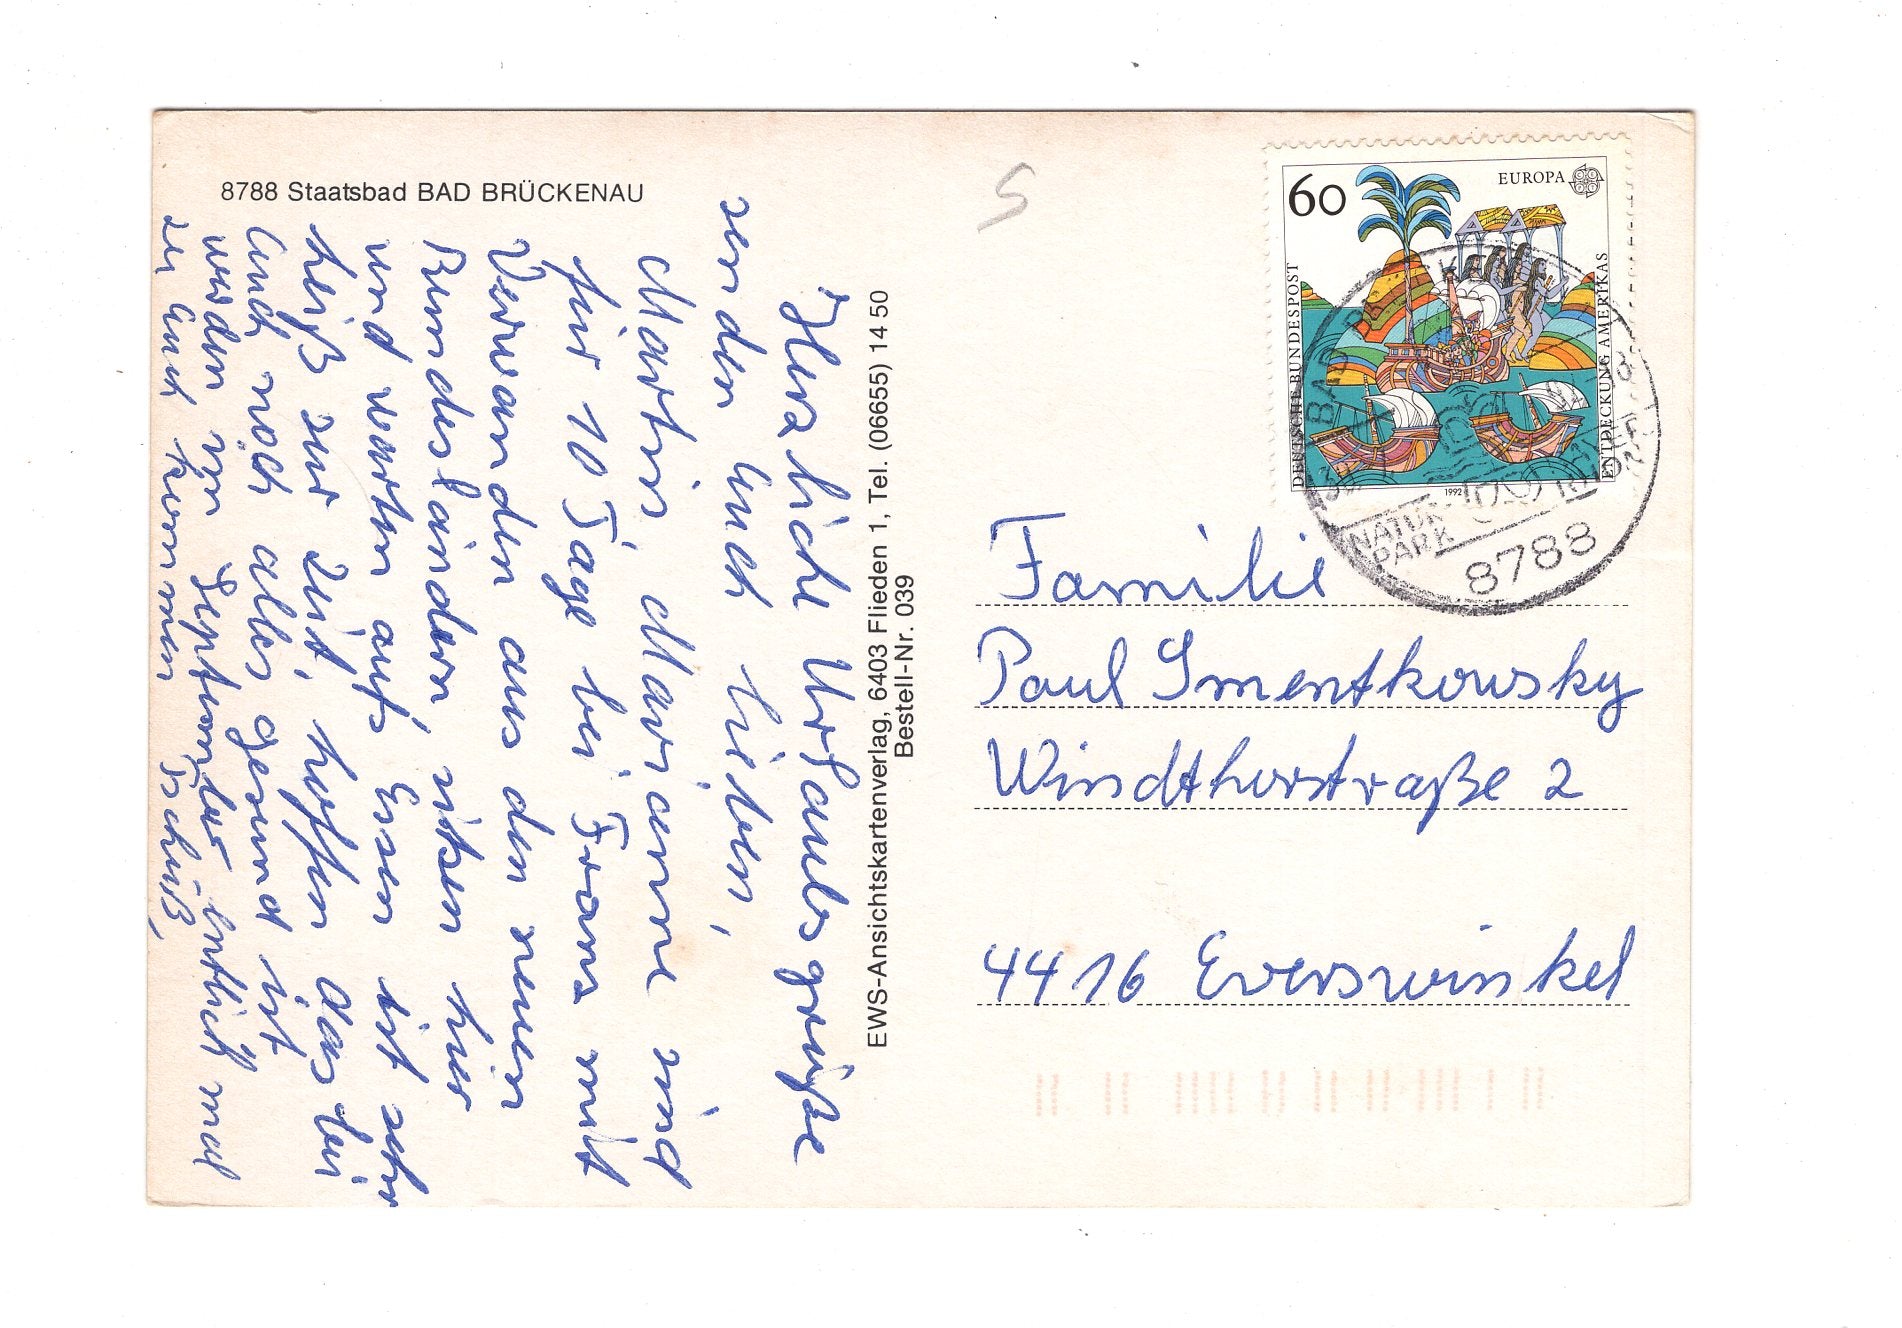 8788 Staatsbad BAD BRÜCKENAU
Herzliche Urlaubsgrüße
senden Euch lieben,
Martin, Mariane sind
für 10 Tage bei Franz mit
Verwanden aus den neuen
Bundesländern sitzen hier
und warten auf's Essen ist sehr
heiß zur Zeit, hoffen das bei
Euch noch alles gesund ist
werden im September entlich mal
zu Euch kommen Tschüß,
EWS-Ansichtskartenverlag, 6403 Flieden 1, Tel. (06655) 14 50
Bestell-Nr. 039
5
60
EUROPA
DEUTSCHE BUNDESPOST
ENTDECKUNG AMERIKAS
1992
BAD
NATUR
PARK
8788
Familie
Paul Smentkowsky
Windthorstraße 2
4416 Everswinkel